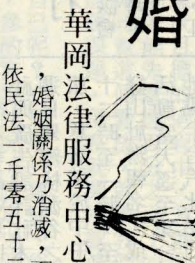 婚
華岡法律服務中心
，婚姻關係乃消滅，
依民法一千零五十二